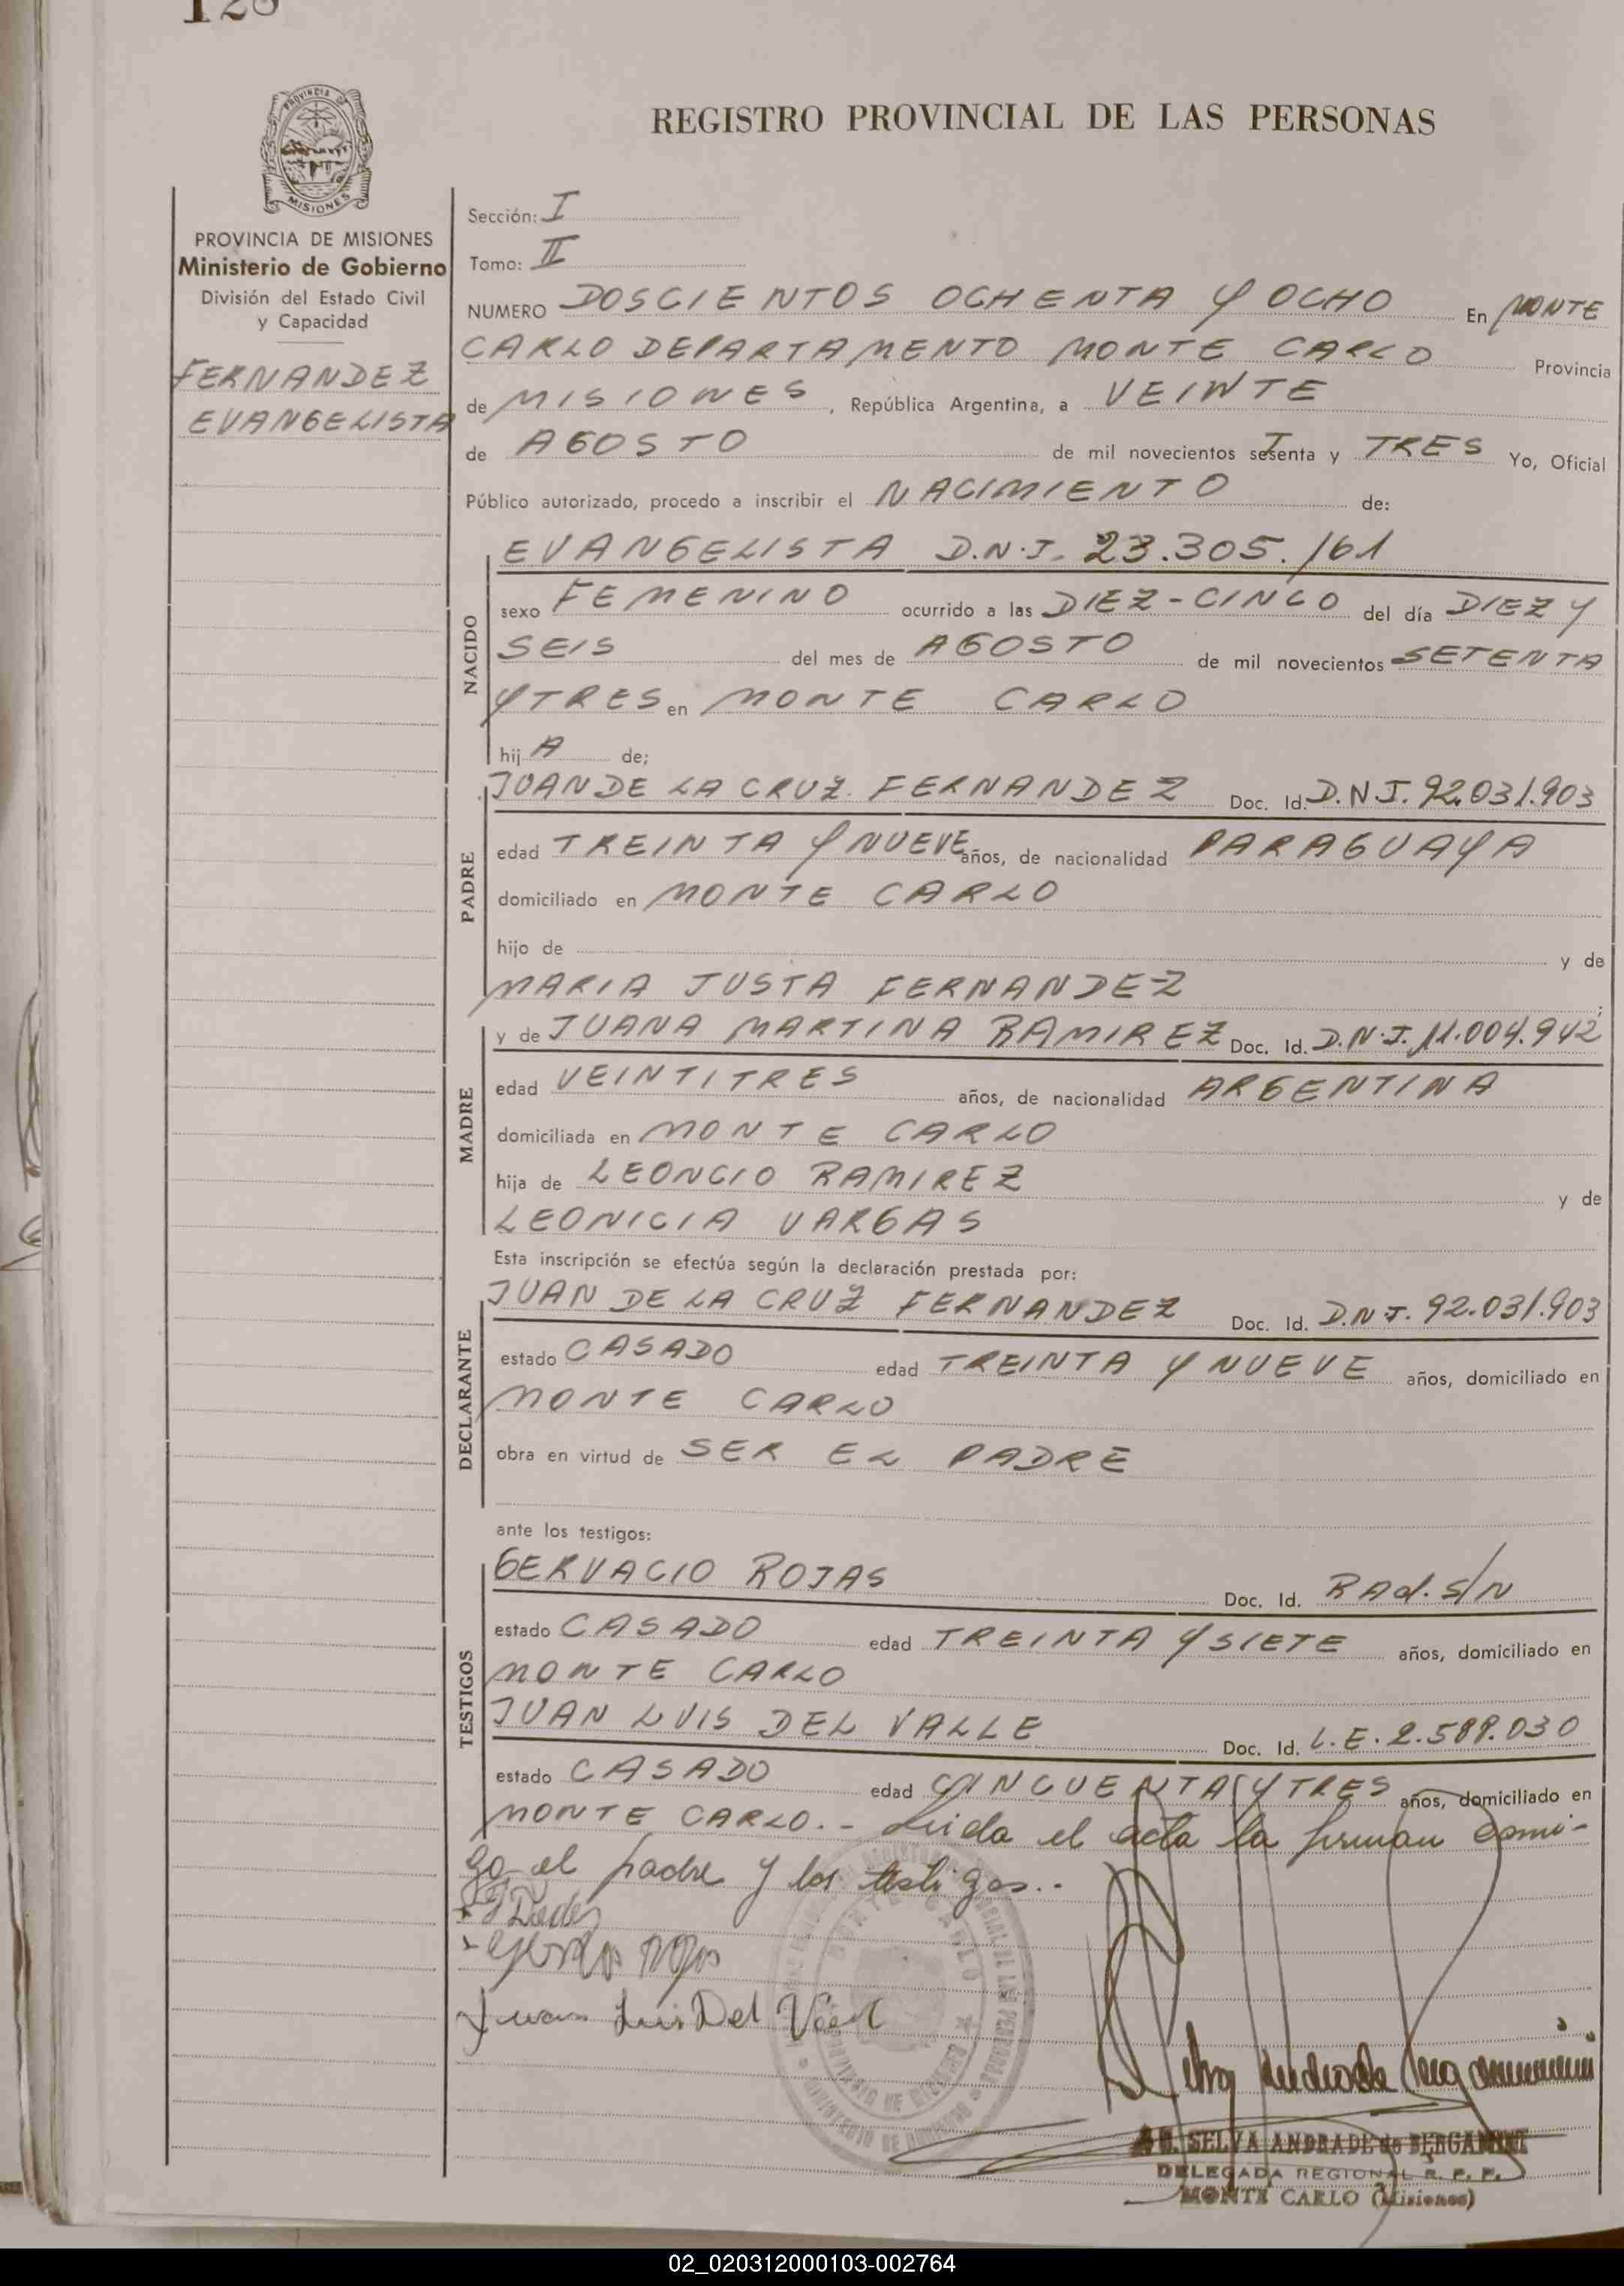 128
REGISTRO PROVINCIAL DE LAS PERSONAS
PROVINCIA DE
MISIONES
PROVINCIA DE MISIONES
Ministerio de Gobierno
División del Estado Civil
y Capacidad
FERNANDEZ
EVANGELISTA
Sección: I
Tomo: II
NUMERO DOSCIENTOS OCHENTA Y OCHO En MONTE
CARLO DEPARTAMENTO MONTE CARLO Provincia
de MISIONES, República Argentina, a VEINTE
de AGOSTO de mil novecientos setenta y TRES Yo, Oficial
Público autorizado, procedo a inscribir el NACIMIENTO de:
NACIDO
EVANGELISTA D.N.I. 23.305.161
sexo FEMENINO ocurrido a las DIEZ-CINCO del día DIEZ Y
SEIS del mes de AGOSTO de mil novecientos SETENTA
Y TRES en MONTE CARLO
hijA de;
PADRE
JUAN DE LA CRUZ FERNANDEZ Doc. Id. D.N.I. 92.031.903
edad TREINTA Y NUEVE años, de nacionalidad PARAGUAYA
domiciliado en MONTE CARLO
hijo de y de
MARIA JUSTA FERNANDEZ
MADRE
y de JUANA MARTINA RAMIREZ Doc. Id. D.N.I. 11.004.942
edad VEINTITRES años, de nacionalidad ARGENTINA
domiciliada en MONTE CARLO
hija de LEONCIO RAMIREZ y de
LEONICIA VARGAS
Esta inscripción se efectúa según la declaración prestada por:
DECLARANTE
JUAN DE LA CRUZ FERNANDEZ Doc. Id. D.N.I. 92.031.903
estado CASADO edad TREINTA Y NUEVE años, domiciliado en
MONTE CARLO
obra en virtud de SER EL PADRE
ante los testigos:
TESTIGOS
GERVACIO ROJAS Doc. Id. RAD. S/N
estado CASADO edad TREINTA Y SIETE años, domiciliado en
MONTE CARLO
JUAN LUIS DEL VALLE Doc. Id. L.E. 2.589.030
estado CASADO edad CINCUENTA Y TRES años, domiciliado en
MONTE CARLO.- Leida el acta la firman conmi-
go el padre y los testigos..
Juan Luis Del Valle
MONTE CARLO
SELVA ANDRADE de BERGAMINI
DELEGADA REGIONAL R. P. P.
MONTE CARLO (Misiones)
02_020312000103-002764